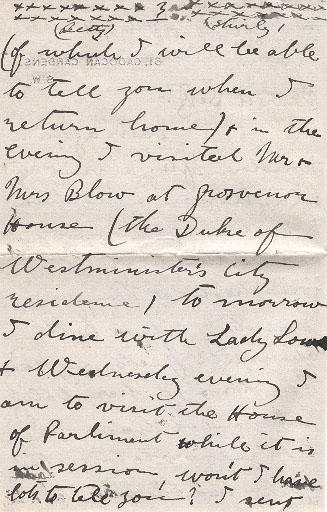 x x x x x x x 3 x x x x x x x
(Betty) (Shirly)
(of which I will be able
61, CADOGAN GARDENS,
S.W.
to tell you when I
return home) + in the
evening I visited Mr +
Mrs Blow at Grosvenor
House (the Duke of
Westminister's city
residence) to morrow
I dine with Lady Low
+ Wednesday evening I
am to visit the House
of Parliment while it is
in session, won't I have
lots to tell you? I sent